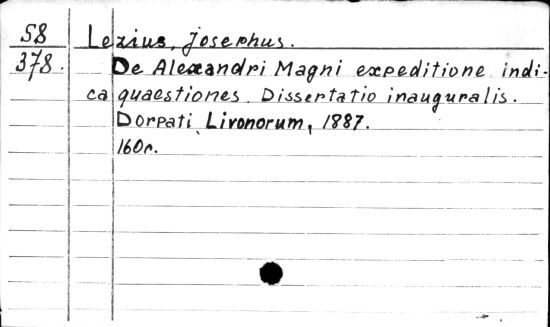 58 Lezius, Josephus.
378. De Alexandri Magni expeditione indi-
ca quaestiones. Dissertatio inauguralis.
Dorpati Livonorum, 1887.
160c.